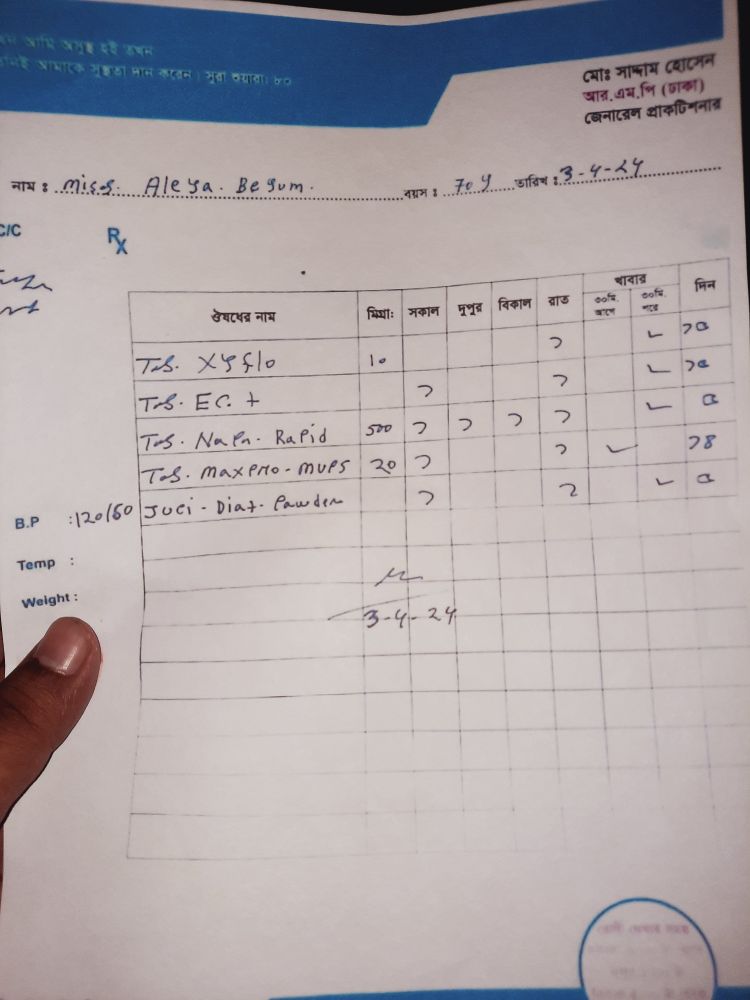 আমি অসুস্থ হই তখন
আমাকে সুস্থতা দান করেন। সুরা শুয়ারা: ৮০
মোঃ সাদ্দাম হোসেন
আর.এম.পি (ঢাকা)
জেনারেল প্রাকটিশনার
নাম : Miss. Aleya. Begum. বয়স : 70 y তারিখ : 3-4-24
C/C
Rx
ঔষধের নাম মিগ্রাঃ সকাল দুপুর বিকাল রাত খাবার দিন
৩০মি. আগে ৩০মি. পরে
Tab. Xyflo 10 ১ ✓ ১৫
Tab. EC. + ১ ১ ✓ ১৫
Tab. Napa. Rapid 500 ১ ১ ১ ১ ✓ ৫
Tab. Maxpro-mups 20 ১ ১ ✓ ১৪
B.P : 120/60 Juci-Diat-Pawder ১ ২ ✓ ৫
Temp :
3-4-24
Weight :